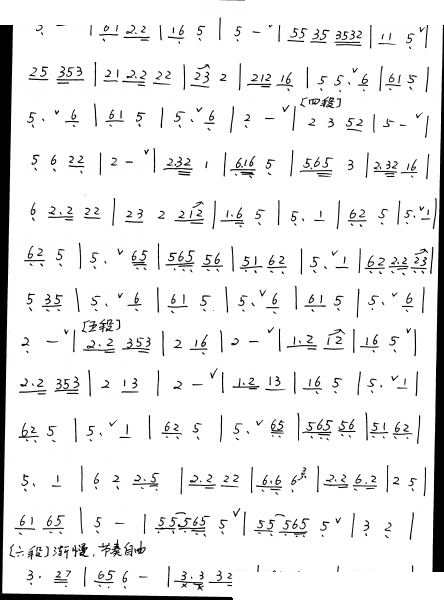 5 - | 61 2.2 | 16 5 | 5 - ∨ | 55 35 3532 | 11 5 ∨ |
25 353 | 21 2.2 22 | 23 2 | 212 16 | 5 5. ∨ 6 | 61 5 |
5. ∨ 6 | 61 5 | 5. ∨ 6 | 2 - ∨ | [四段] 2 3 52 | 5 - ∨ |
5 6 22 | 2 - ∨ | 232 1 | 6.16 5 | 5.65 3 | 2.32 16 |
6 2.2 22 | 23 2 212 | 1.6 5 | 5. 1 | 62 5 | 5. ∨ 1 |
62 5 | 5. ∨ 65 | 565 56 | 51 62 | 5. ∨ 1 | 62 2.2 23 |
5 35 | 5. ∨ 6 | 61 5 | 5. ∨ 6 | 61 5 | 5. ∨ 6 |
2 - ∨ | [五段] 2.2 353 | 2 16 | 2 - ∨ | 1.2 12 | 16 5 ∨ |
2.2 353 | 2 13 | 2 - ∨ | 1.2 13 | 16 5 | 5. ∨ 1 |
62 5 | 5. ∨ 1 | 62 5 | 5. ∨ 65 | 565 56 | 51 62 |
5. 1 | 6 2 2.5 | 2.2 22 | 6.6 6 3 | 2.2 6.2 | 2 5 |
61 65 | 5 - | 55 565 5 ∨ | 55 565 5 ∨ | 3 2 |
[六段] 渐慢、节奏自由
3. 27 | 65 6 - | 3.3 32